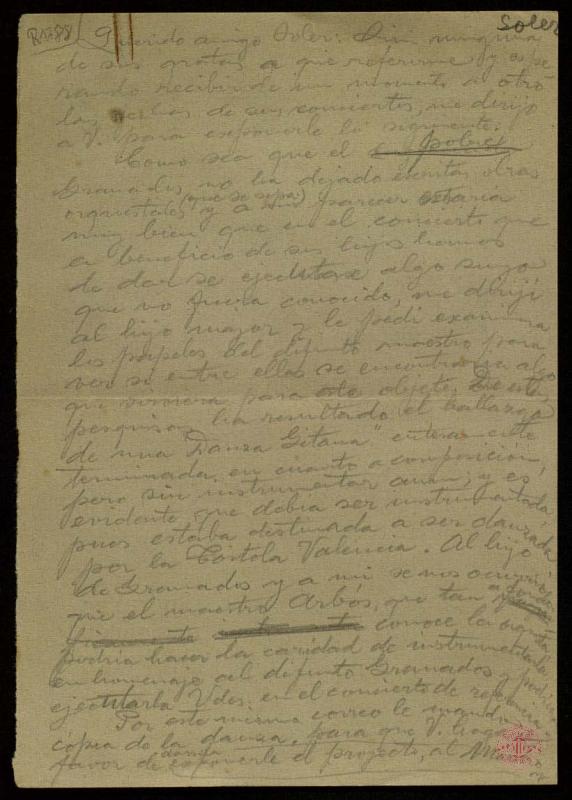 R1288
Soler
Querido amigo Soler: Sin ninguna
de sus gratas a que referirme y espe
rando recibir de un momento a otro
las fechas de sus conciertos, me dirijo
a V. para exponerle lo siguiente.
Como sea que el pobre
Granados no ha dejado escritas obras
orquestales (que se sepa) y a mi parecer estaria
muy bien que en el concierto que
a beneficio de sus hijos hemos
de dar se ejecutase algo suyo
que no fuera conocido, me dirijí
al hijo mayor y le pedí examinara
los papeles del difunto maestro para
ver si entre ellos se encontraria algo
que sirviera para este objeto. De estas
pesquisas ha resultado el hallazgo
de una "Danza Gitana" enteramente
terminada en cuanto a composicion,
pero sin instrumentar aun; y es
evidente que debia ser instrumentada,
pues estaba destinada a ser danzada
por la Tórtola Valencia. Al hijo
de Granados y a mi se nos ocurrió
que el maestro Arbós, que tan
conoce la orquesta
podria hacer la caridad de instrumentarla
en homenaje al difunto Granados y
ejecutarla Vdes. en el concierto de referencia.
Por este mismo correo le mando
copia de la danza, para que V. haga el
favor de exponerle el proyecto, al